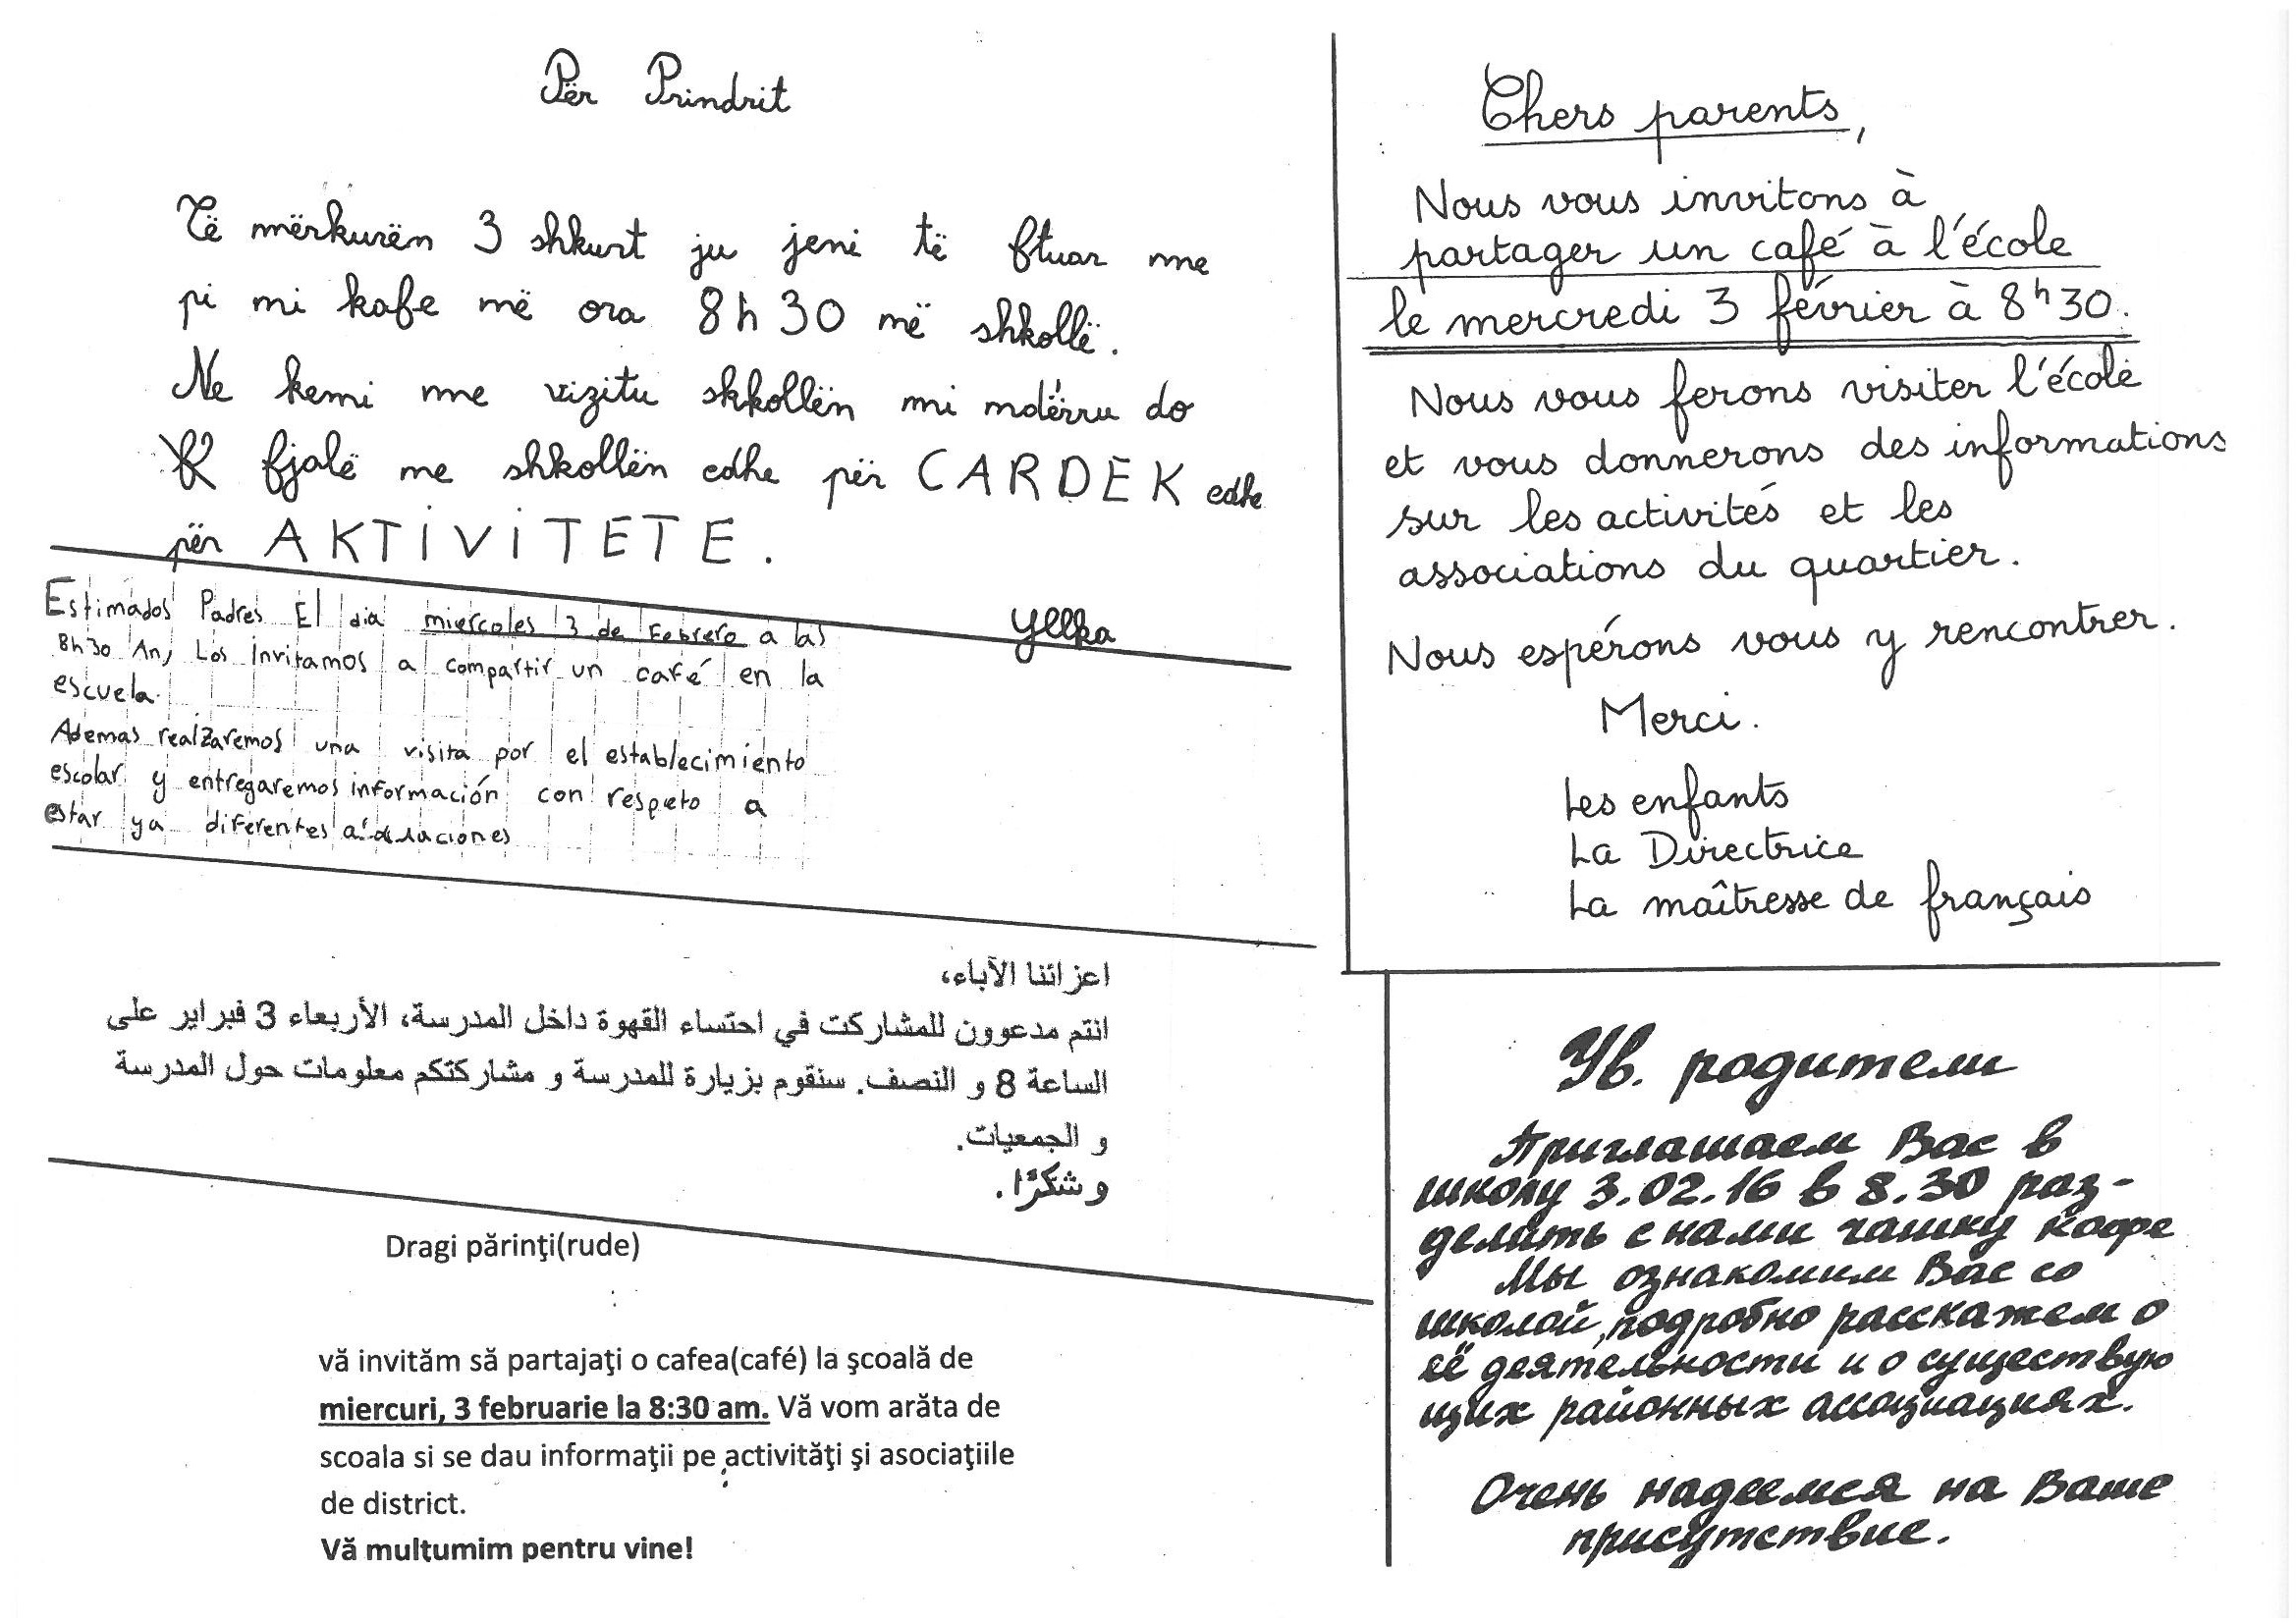 Për Prindrit
Të mërkurën 3 shkurt ju jeni të ftuar me
pi mi kafe më ora 8h30 më shkollë.
Ne kemi me vizitu skkollën mi mdërru do
fjalë me shkollën edhe për CARDEK edhe
për AKTİVİTETE.
Yllka
Estimados Padres El dia miercoles 3 de Febrero a las
8h30 An, Los Invitamos a compartir un café en la
escuela.
Ademas realzaremos una visita por el establecimiento
escolar y entregaremos información con respeto a
estar ya diferentes
اعزائنا الآباء،
انتم مدعوون للمشاركت في احتساء القهوة داخل المدرسة، الأربعاء 3 فبراير على
الساعة 8 و النصف. سنقوم بزيارة للمدرسة و مشاركتكم معلومات حول المدرسة
و الجمعيات.
و شكرًا.
Dragi părinţi(rude)
:
vă invităm să partajaţi o cafea(café) la şcoală de
miercuri, 3 februarie la 8:30 am. Vă vom arăta de
scoala si se dau informaţii pe activităţi şi asociaţiile
de district.
Vă multumim pentru vine!
Chers parents,
Nous vous invitons à
partager un café à l'école
le mercredi 3 février à 8h30.
Nous vous ferons visiter l'école
et vous donnerons des informations
sur les activités et les
associations du quartier.
Nous espérons vous y rencontrer.
Merci.
Les enfants
La Directrice
La maîtresse de français
Ув. родители
Приглашаем Вас в
школу 3.02.16 в 8.30 раз-
делить с нами чашку кофе
Мы ознакомим Вас со
школой, подробно расскажем о
её деятельности и о существую
щих районных ассоциациях.
Очень надеемся на Ваше
присутствие.